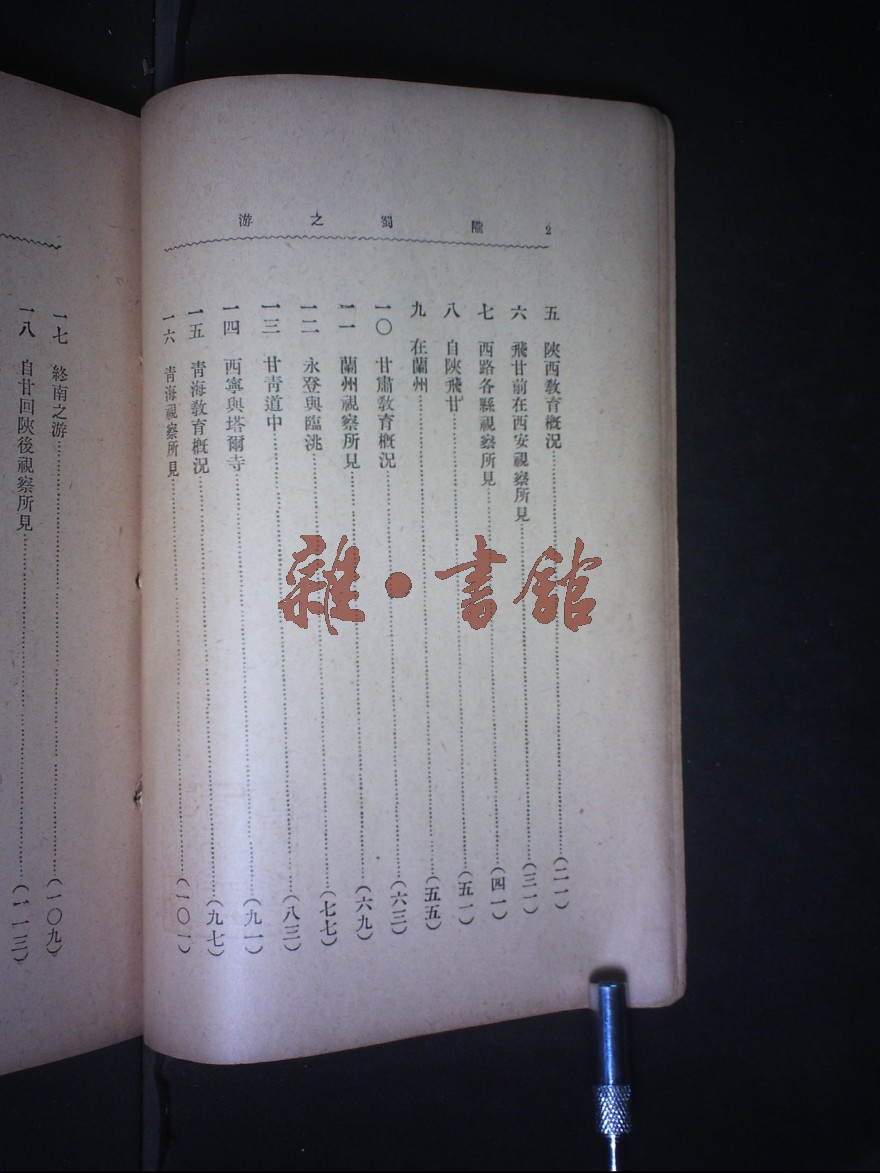 2 隴蜀之游
五 陝西教育概況……(二一)
六 飛甘前在西安視察所見……(三一)
七 西路各縣視察所見……(四一)
八 自陝飛甘……(五一)
九 在蘭州……(五五)
一〇 甘肅教育概況……(六三)
一一 蘭州視察所見……(六九)
一二 永登與臨洮……(七七)
一三 甘青道中……(八三)
一四 西寧與塔爾寺……(九一)
一五 青海教育概況……(九七)
一六 青海視察所見……(一〇一)
一七 終南之游……(一〇九)
一八 自甘回陝後視察所見……(一一三)
雜·書館